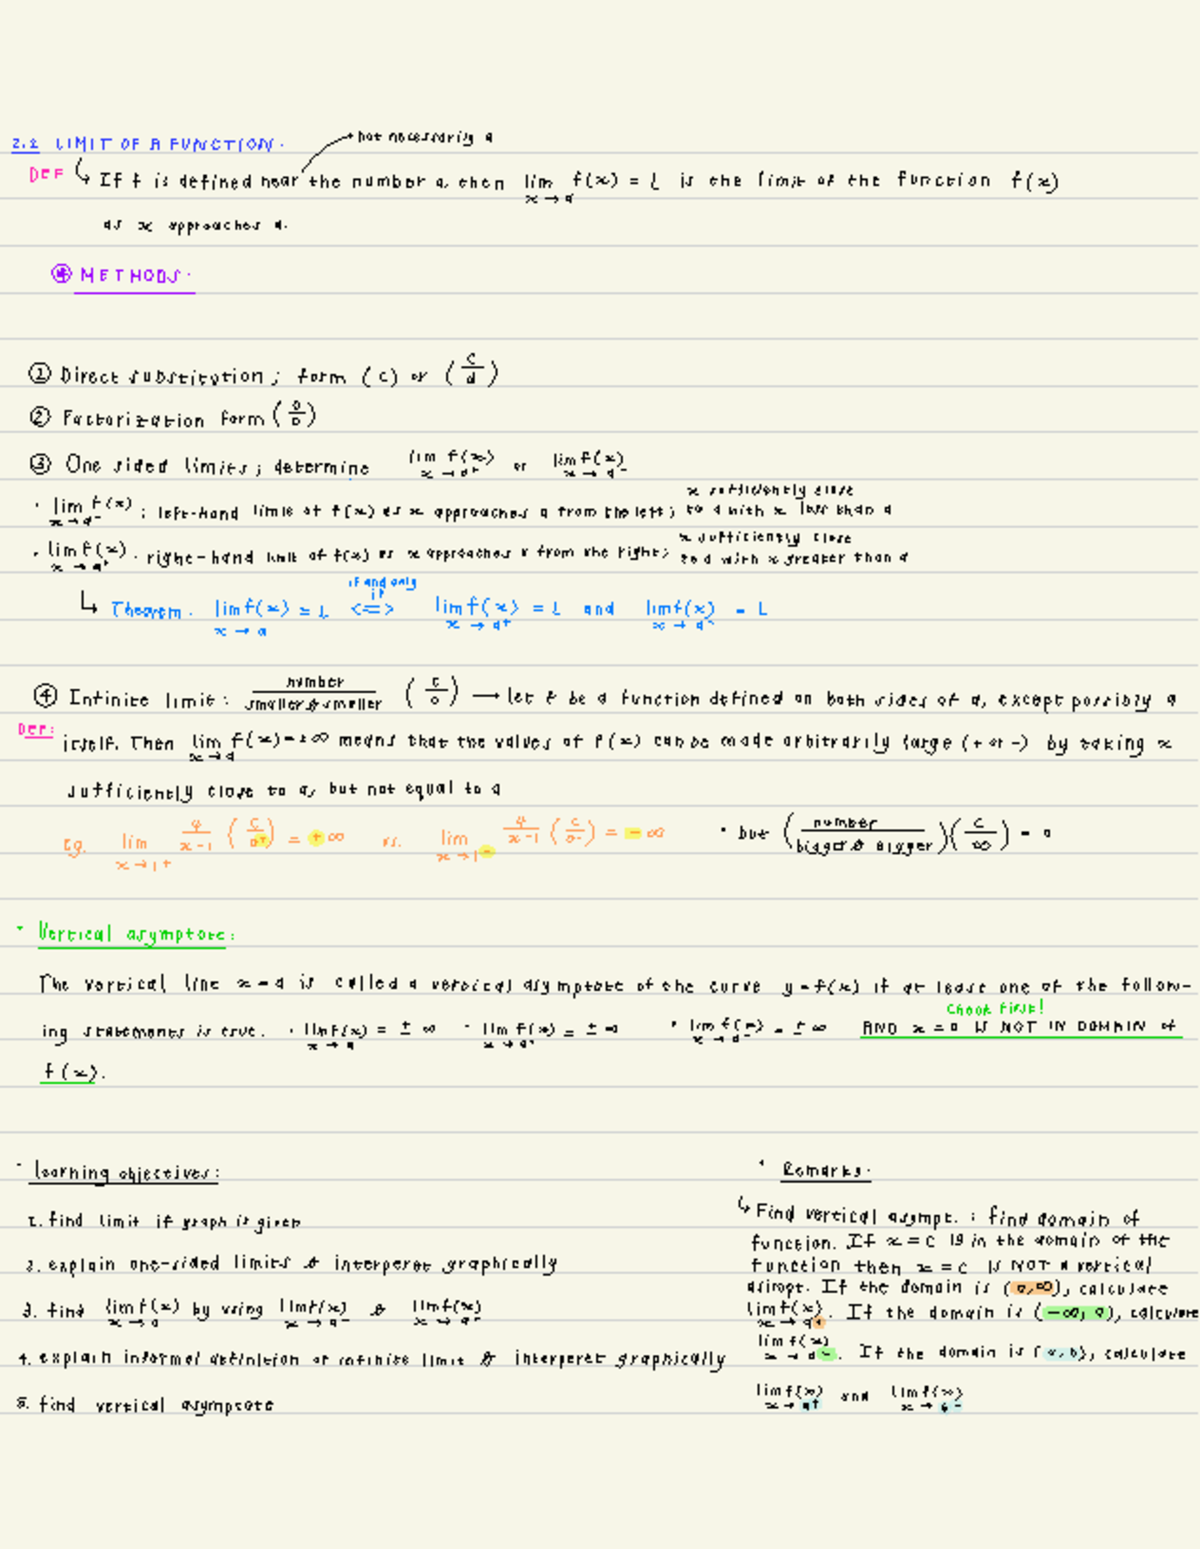 2.2 LIMIT OF A FUNCTION.
not necessarily a
DEF ↳ If f is defined near the number a, then lim x→a f(x) = L is the limit of the function f(x)
as x approaches a.
METHODS.
① Direct substitution; form (c) or (c/d)
② Factorization form (0/0)
③ One sided limits; determine lim x→a⁺ f(x) or lim x→a⁻ f(x)
· lim x→a⁻ f(x); left-hand limit of f(x) as x approaches a from the left; x sufficiently close to a with x less than a
· lim x→a⁺ f(x). right-hand limit of f(x) as x approaches a from the right; x sufficiently close to a with x greater than a
if and only if
↳ Theorem. lim x→a f(x) = L <=> lim x→a⁺ f(x) = L and lim x→a⁻ f(x) = L
④ Infinite limit: number/smaller & smaller (c/0) → let f be a function defined on both sides of a, except possibly a
DEF: itself. Then lim x→a f(x) = ±∞ means that the values of f(x) can be made arbitrarily large (+ or -) by taking x
sufficiently close to a, but not equal to a
Eg. lim x→1⁺ 4/x-1 (c/0⁺) = +∞ vs. lim x→1⁻ 4/x-1 (c/0⁻) = -∞ · but (number/bigger & bigger)(c/∞) = 0
· Vertical asymptote:
The vertical line x=a is called a vertical asymptote of the curve y=f(x) if at least one of the follow-
Check first!
ing statements is true. · lim x→a f(x) = ±∞ · lim x→a⁺ f(x) = ±∞ · lim x→a⁻ f(x) = ±∞ AND x=a IS NOT IN DOMAIN of
f(x).
· learning objectives:
1. find limit if graph is given
2. explain one-sided limits & interperet graphically
3. find lim x→a f(x) by using lim x→a⁻ f(x) & lim x→a⁺ f(x)
4. explain informal definition of infinite limit & interperet graphically
5. find vertical asymptote
· Remarks:
↳ Find vertical asympt. : find domain of
function. If x=c is in the domain of the
function then x=c IS NOT a vertical
asimpt. If the domain is (a,∞), calculate
lim x→a⁺ f(x). If the domain is (-∞, a), calculate
lim x→a⁻ f(x). If the domain is (a,b), calculate
lim x→a⁺ f(x) and lim x→b⁻ f(x)